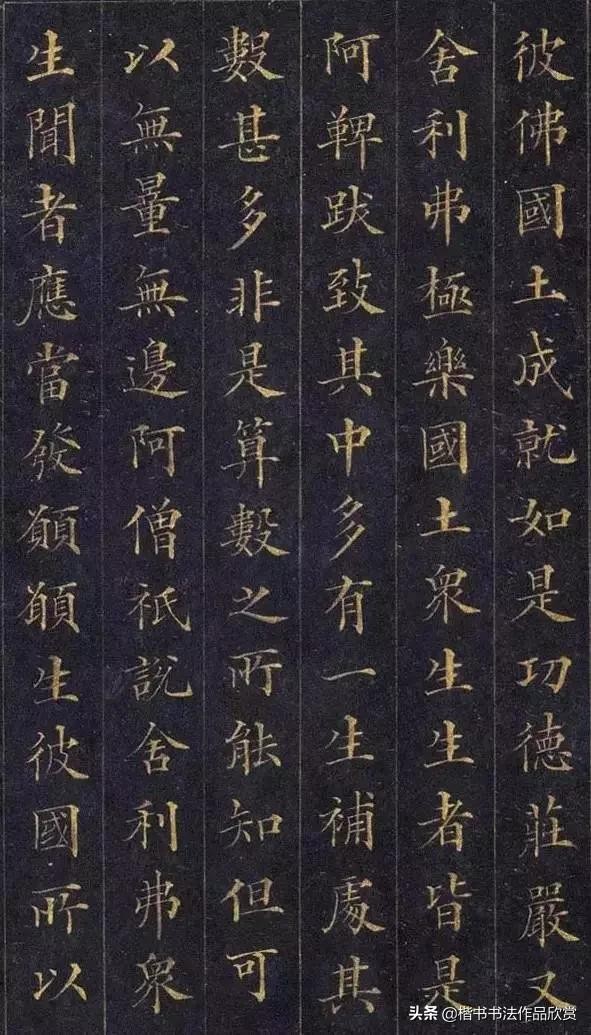 彼佛國土成就如是功德莊嚴又
舍利弗極樂國土眾生生者皆是
阿鞞跋致其中多有一生補處其
數甚多非是算數之所能知但可
以無量無邊阿僧祇說舍利弗眾
生聞者應當發願願生彼國所以
头条 @楷书书法作品欣赏